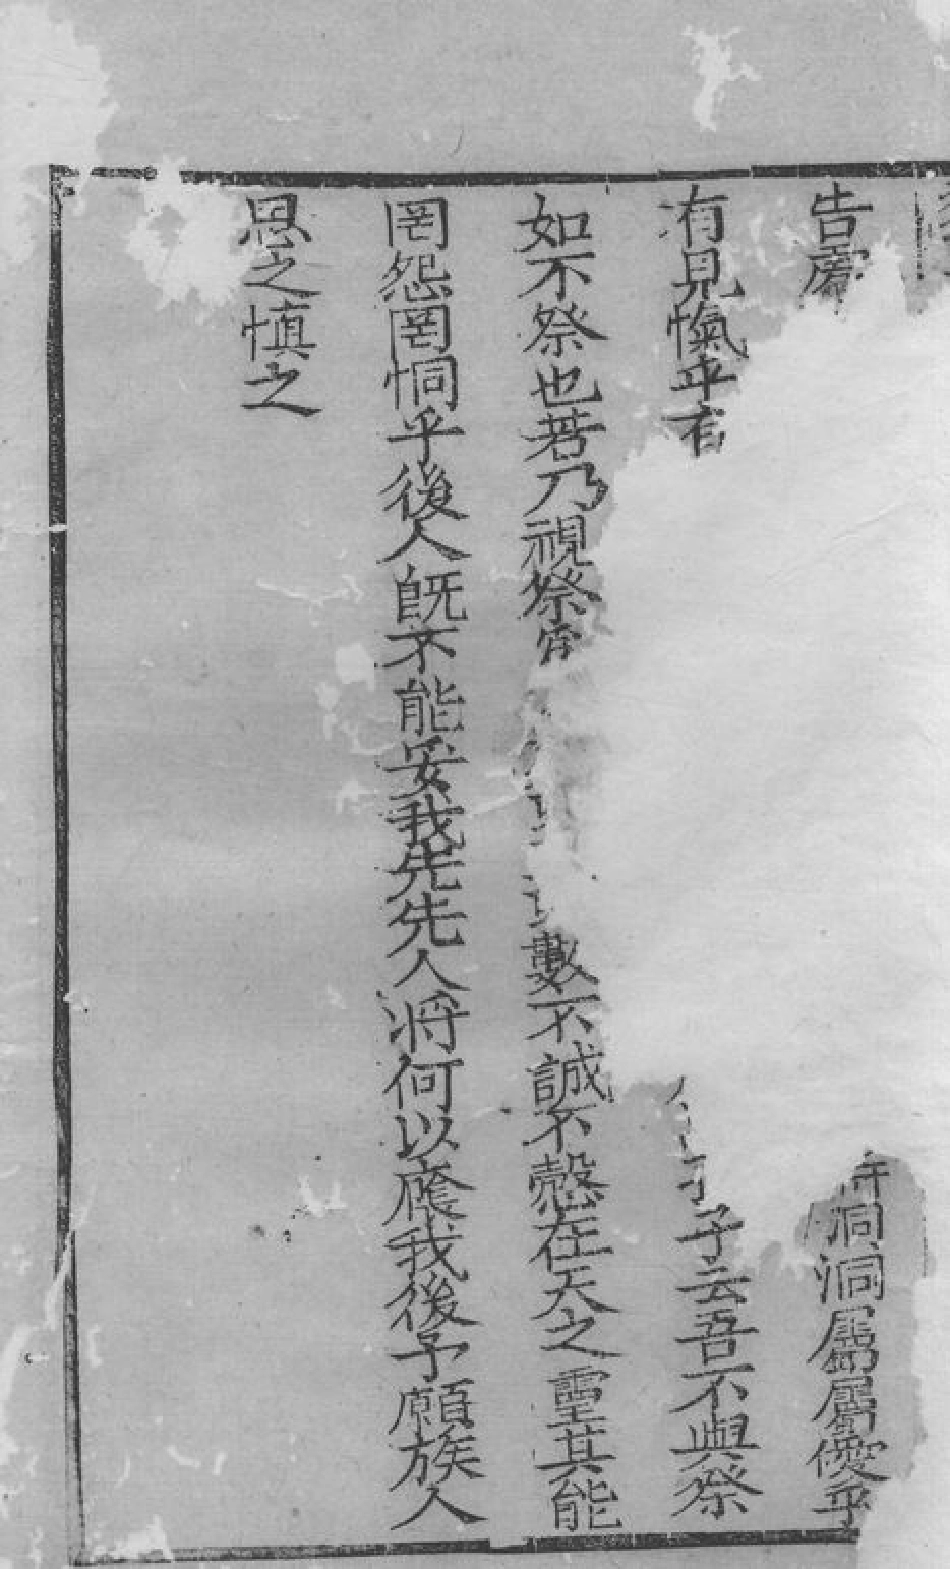 告處
洞洞屬屬僾乎
有見愾乎有
子云吾不與祭
如不祭也若乃視祭
數不誠不慤在天之靈其能
罔怨罔恫乎後人旣不能妥我先先人將何以廕我後予願族人
思之慎之